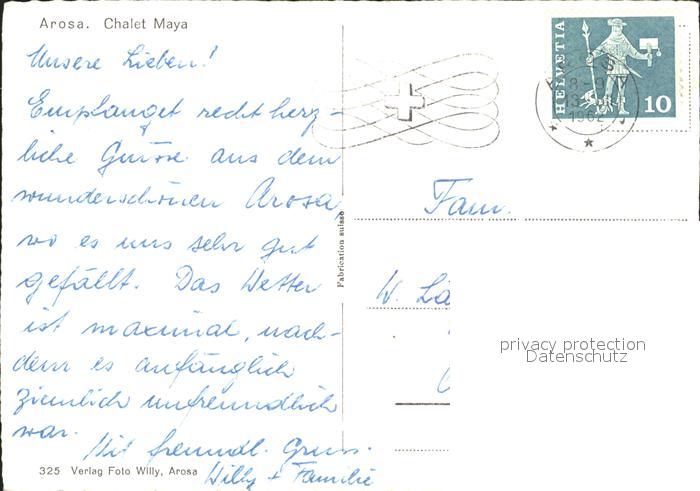 Arosa. Chalet Maya
Unsere Lieben!
Empfanget recht herz-
liche Grüsse aus dem
wunderschönen Arosa,
wo es uns sehr gut
gefällt. Das Wetter
ist maximal, nach-
dem es anfänglich
ziemlich unfreundlich
war.
Mit freundl. Gruss.
Willy + Familie
325 Verlag Foto Willy, Arosa
Fabrication suisse
HELVETIA
10
1962
Fam.
W. Lä
privacy protection
Datenschutz